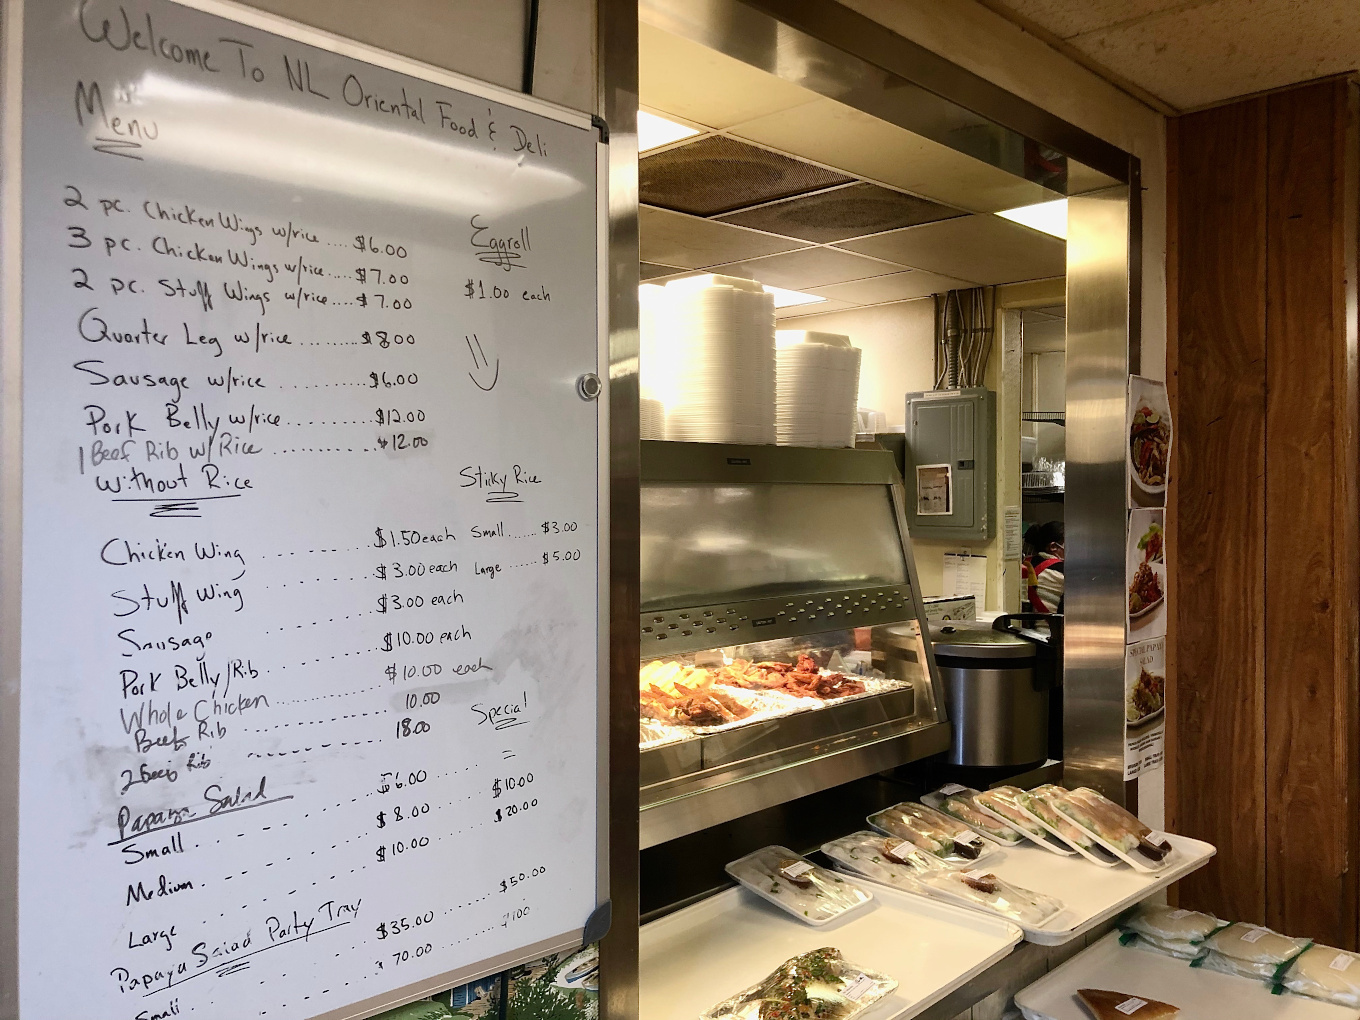 Welcome To NL Oriental Food & Deli
Menu
2 pc. Chicken Wings w/rice .... $6.00
3 pc. Chicken Wings w/rice..... $7.00
2 pc. Stuff Wings w/rice.... $7.00
Quarter Leg w/rice ......... $8.00
Sausage w/rice ............ $6.00
Pork Belly w/rice ............ $12.00
1 Beef Rib w/ Rice ............. $12.00
Eggroll
$1.00 each
Without Rice
Chicken Wing ......... $1.50 each
Stuff Wing ......... $3.00 each
Sausage ......... $3.00 each
Pork Belly/Rib ......... $10.00 each
Whole Chicken ............ $10.00 each
Beef Rib ............ 10.00
2 Beef Rib ............ 18.00
Sticky Rice
Small ...... $3.00
Large ...... $5.00
Papaya Salad
Special
Small ......... $6.00
Medium ......... $8.00 ...... $10.00
Large ......... $10.00 ...... $20.00
Papaya Salad Party Tray
Small ......... $35.00 ...... $50.00
70.00 ......
SPECIAL PAPAYA SALAD